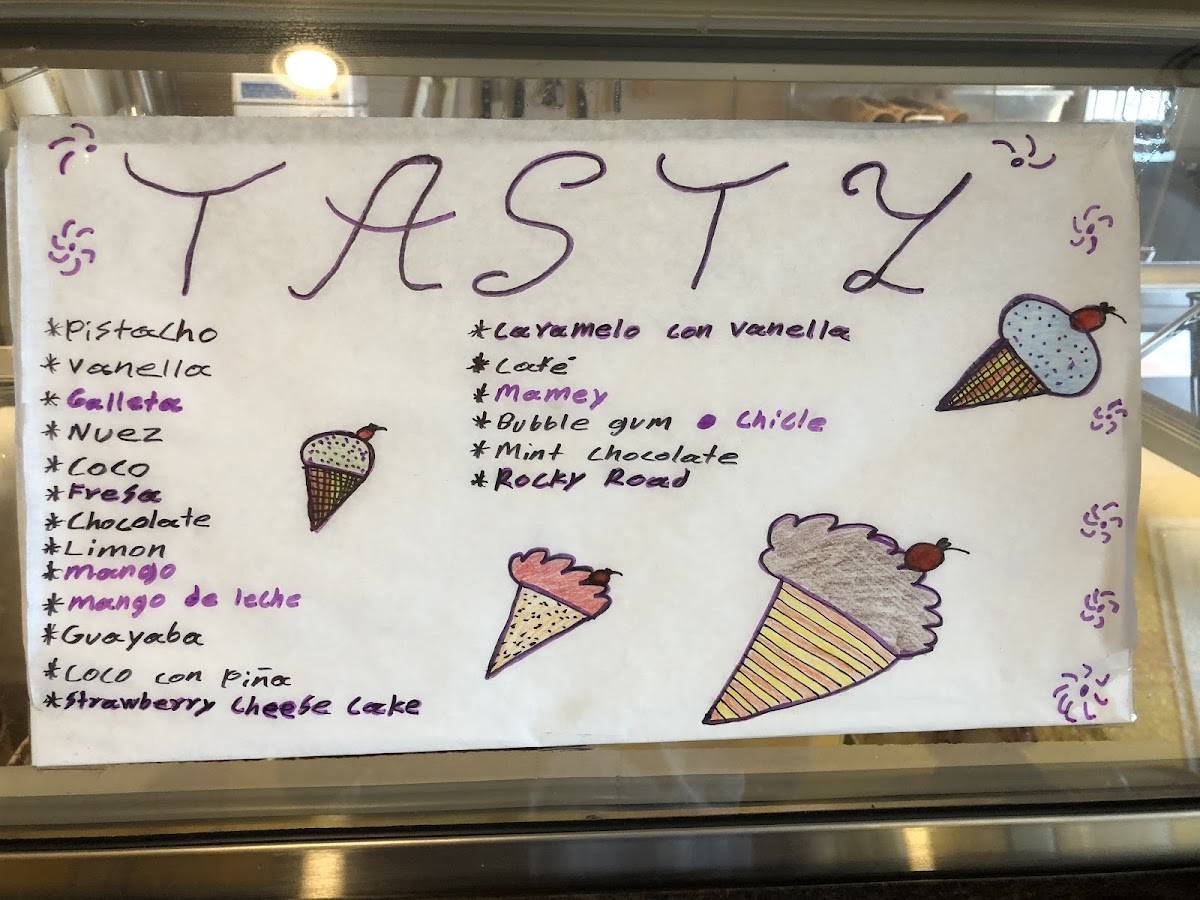 TASTY
*Pistacho
*Vanella
*Galleta
*Nuez
*Coco
*Fresa
*Chocolate
*Limon
*mango
*mango de leche
*Guayaba
*Coco con piña
*Strawberry Cheese Cake
*Caramelo con vanella
*Café
*Mamey
*Bubble gum • Chicle
*Mint Chocolate
*Rocky Road